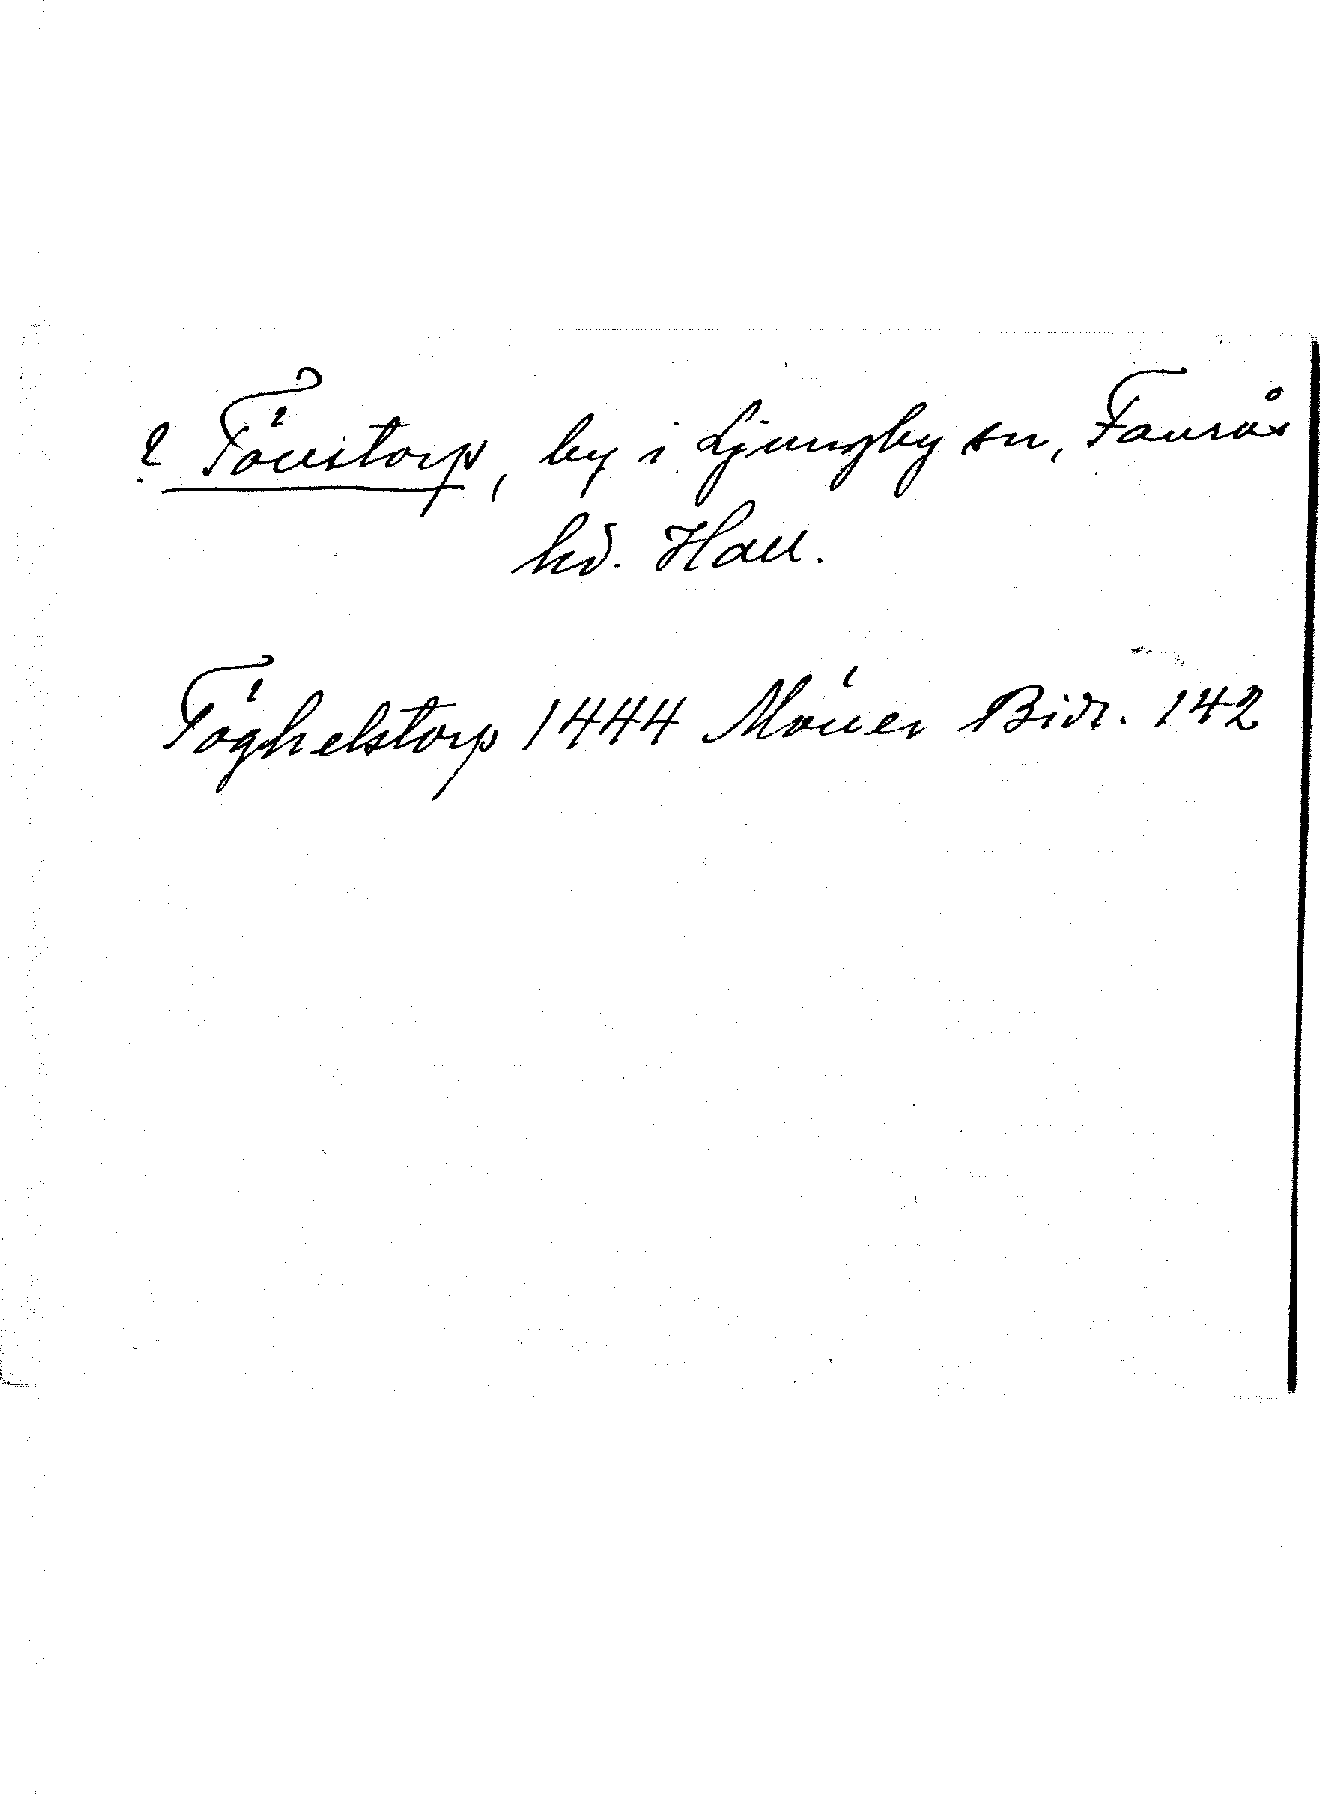 ? Töllstorp, by i Ljungby sn, Faurås
hd. Hall.
Töghelstorp 1444 Möller Bidr. 142